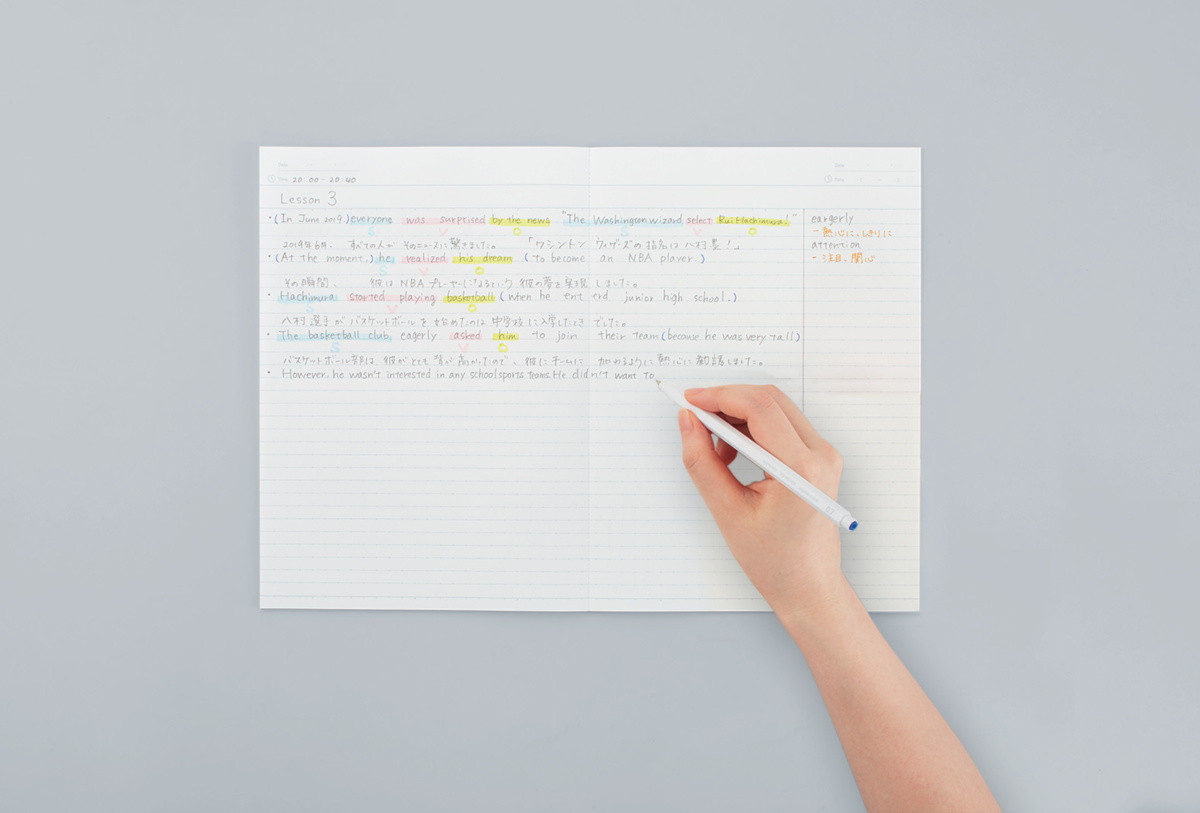 Time 20:00 - 20:40
Time
Lesson 3
・(In June 2019,) everyone was surprised by the news "The Washington wizard select Rui Hachimura!"
S V O S V O
2019年6月、 すべての人が そのニュースに驚きました。 「ワシントン ウィザーズの指名は八村塁!」
・(At the moment,) he realized his dream (to become an NBA player.)
S V O
その瞬間、 彼は NBAプレーヤーになるという 彼の夢を実現 しました。
・Hachimura started playing basketball (when he ent erd junior high school.)
S V O
八村選手が バスケットボールを 始めたのは 中学校に入学したとき でした。
・The basketball club, eagerly asked him to join their team (because he was very tall)
S V O
バスケットボール部は 彼がとても 背が高かったので、彼にチームに 加わるように熱心に勧誘しました。
・However, he wasn't interested in any school sports teams. He didn't want to
eargerly
- 熱心に、しきりに
attention
- 注目、関心